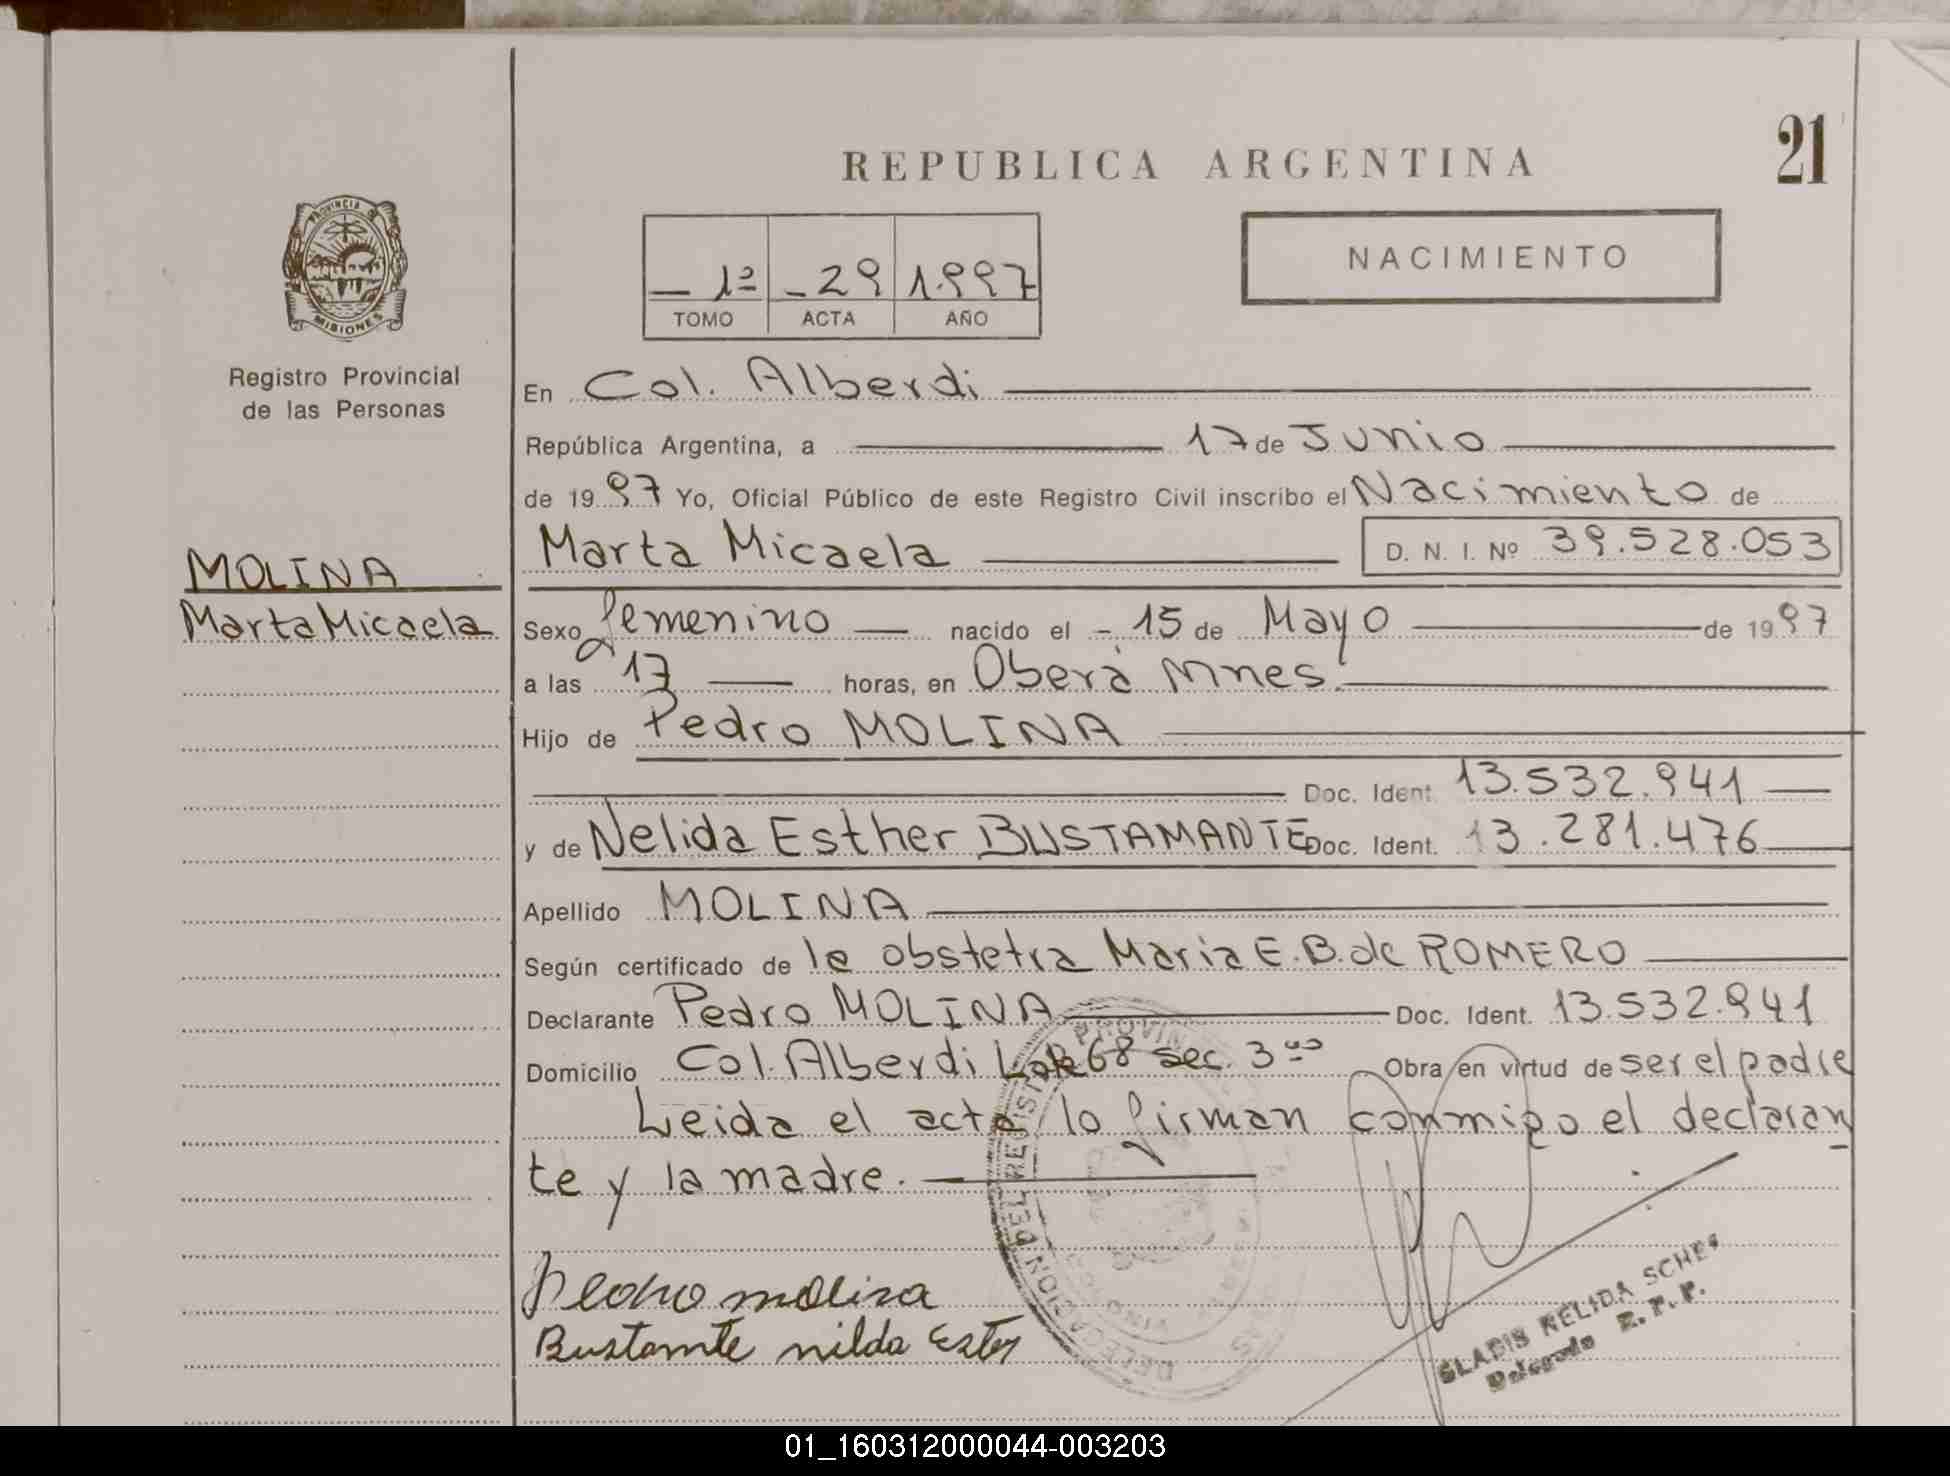 REPUBLICA ARGENTINA
21
PROVINCIA DE
MISIONES
Registro Provincial
de las Personas
1º 29 1.997
TOMO ACTA AÑO
NACIMIENTO
En Col. Alberdi
República Argentina, a 17 de Junio
de 1997 Yo, Oficial Público de este Registro Civil inscribo el Nacimiento de
Marta Micaela D. N. I. Nº 39.528.053
MOLINA
Marta Micaela
Sexo femenino nacido el 15 de Mayo de 1997
a las 17 horas, en Oberá Mnes.
Hijo de Pedro MOLINA
Doc. Ident. 13.532.941
y de Nelida Esther BUSTAMANTE Doc. Ident. 13.281.476
Apellido MOLINA
Según certificado de la obstetra Maria E. B. de ROMERO
Declarante Pedro MOLINA Doc. Ident. 13.532.941
Domicilio Col. Alberdi Lote 68 sec. 3ª Obra en virtud de ser el padre
Leida el acta lo firman conmigo el declaran
te y la madre.
Pedro molina
Bustamte nilda Ester
DELEGACION DEL REGISTRO PROVIN
GLADIS NELIDA
Delegada R. P. P.
01_160312000044-003203